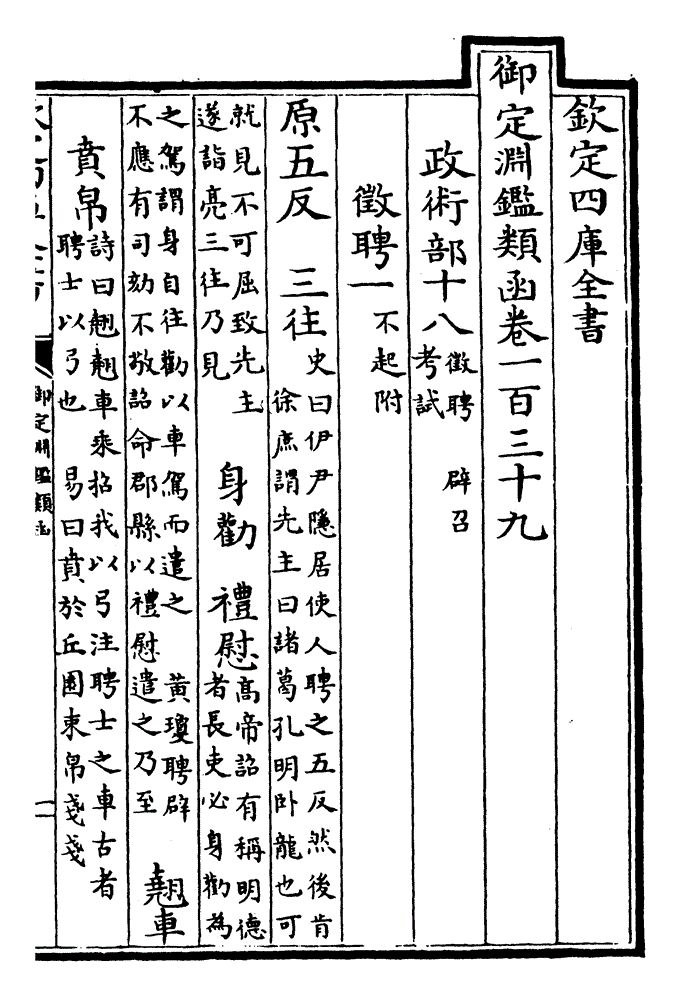 欽定四庫全書
御定淵鑑類函卷一百三十九
政術部十八 徵聘 辟召 考試
徵聘一 不起附
原五反 三往 史曰伊尹隱居使人聘之五反然後肯 徐庶謂先主曰諸葛孔明卧龍也可
就見不可屈致先主 遂詣亮三往乃見 身勸 禮慰 高帝詔有稱明德 者長吏必身勸為
之駕謂身自往勸以車駕而遣之 黄瓊聘辟 不應有司劾不敬詔命郡縣以禮慰遣之乃至 翹車
賁帛 詩曰翹翹車乘招我以弓注聘士之車古者 聘士以弓也 易曰賁於丘園束帛戔戔
御定淵鑑類函 一